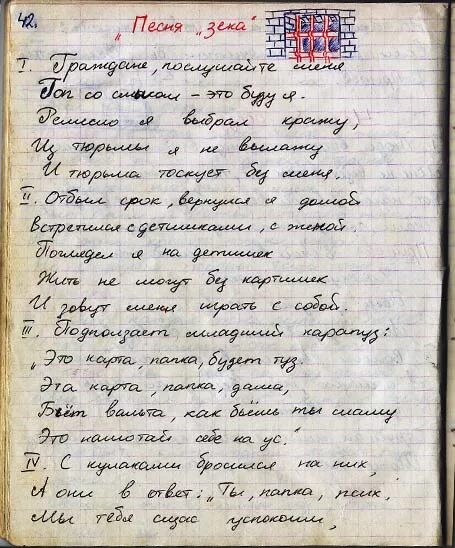 42.
„Песня „зека"
I. Граждане, послушайте меня
Гоп со смыком – это буду я.
Ремесло я выбрал кражу,
Из тюрьмы я не вылажу
И тюрьма тоскует без меня.
II. Отбыл срок, вернулся я домой
Встретился с детишками, с женой.
Поглядел я на детишек
Жить не могут без картишек
И зовут меня играть с собой.
III. Подползает младший карапуз:
„Это карта, папка, будет туз.
Эта карта, папка, дама,
Бьёт вальта, как бьёшь ты маму
Это намотай себе на ус."
IV. С кулаками бросился на них,
А они в ответ: „Ты, папка, псих,
Мы тебя щас успокоим,